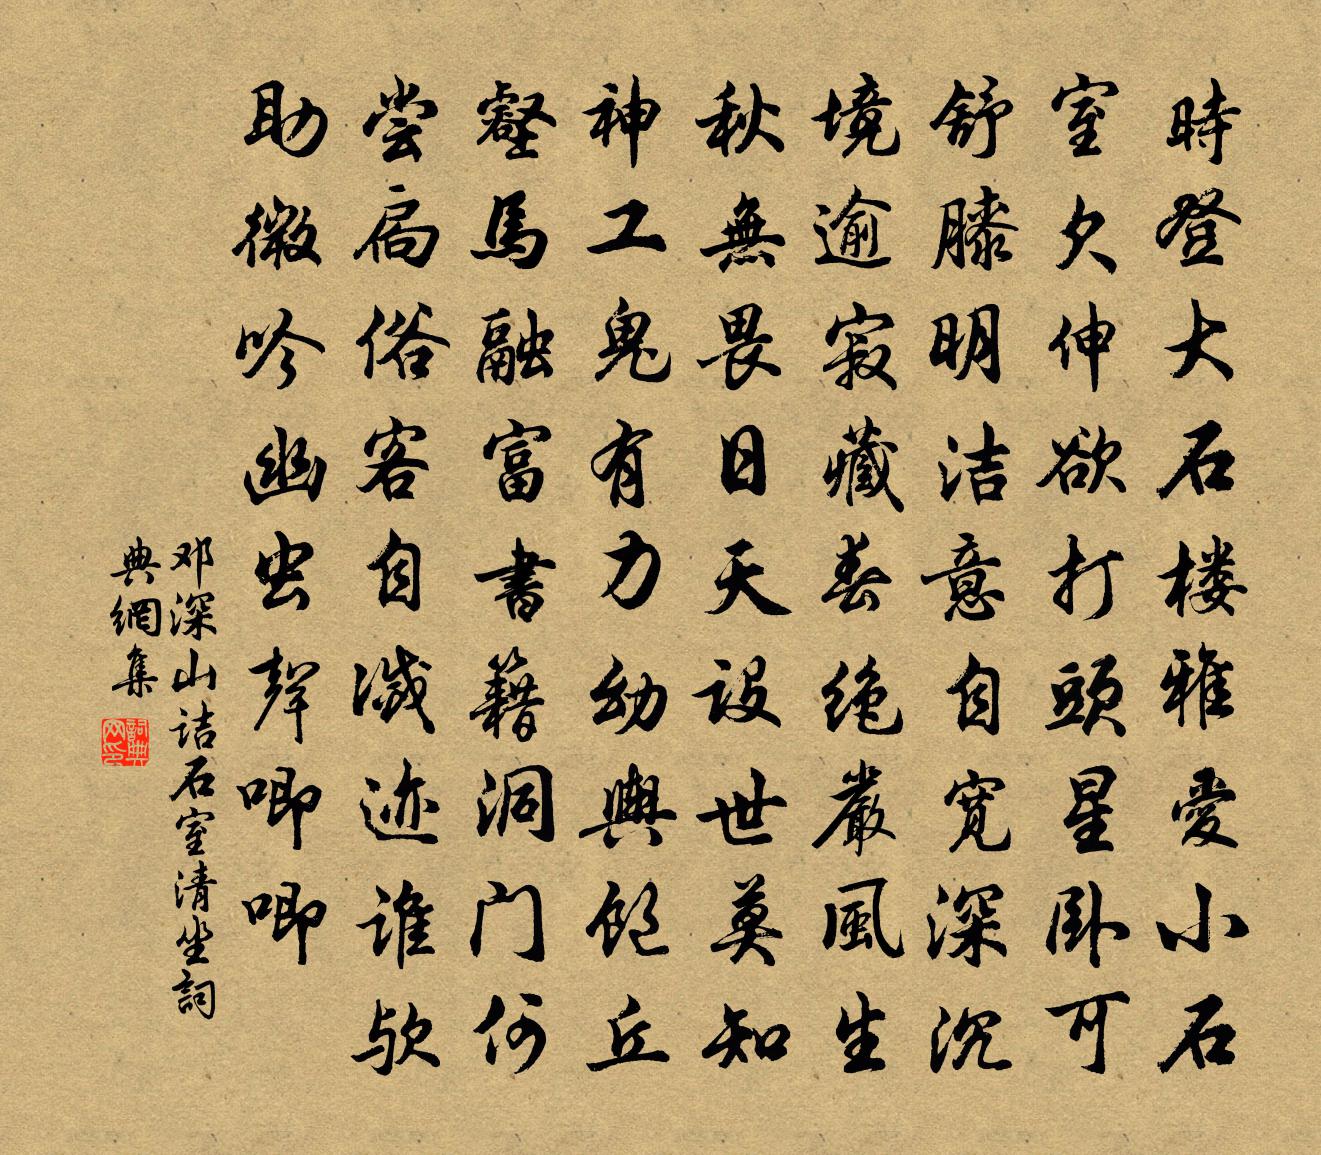 時登大石楼雅愛小石
室欠伸欲打頭星卧可
舒膝明洁意自寬深沉
境逾寂藏春絶嚴風生
秋無畏日天設世莫知
神工鬼有力幼輿饱丘
壑馬融富書籍洞门何
尝扃俗客自滅迹谁欤
助微吟幽虫聲唧唧
邓深山诘石室清坐詞
典網集